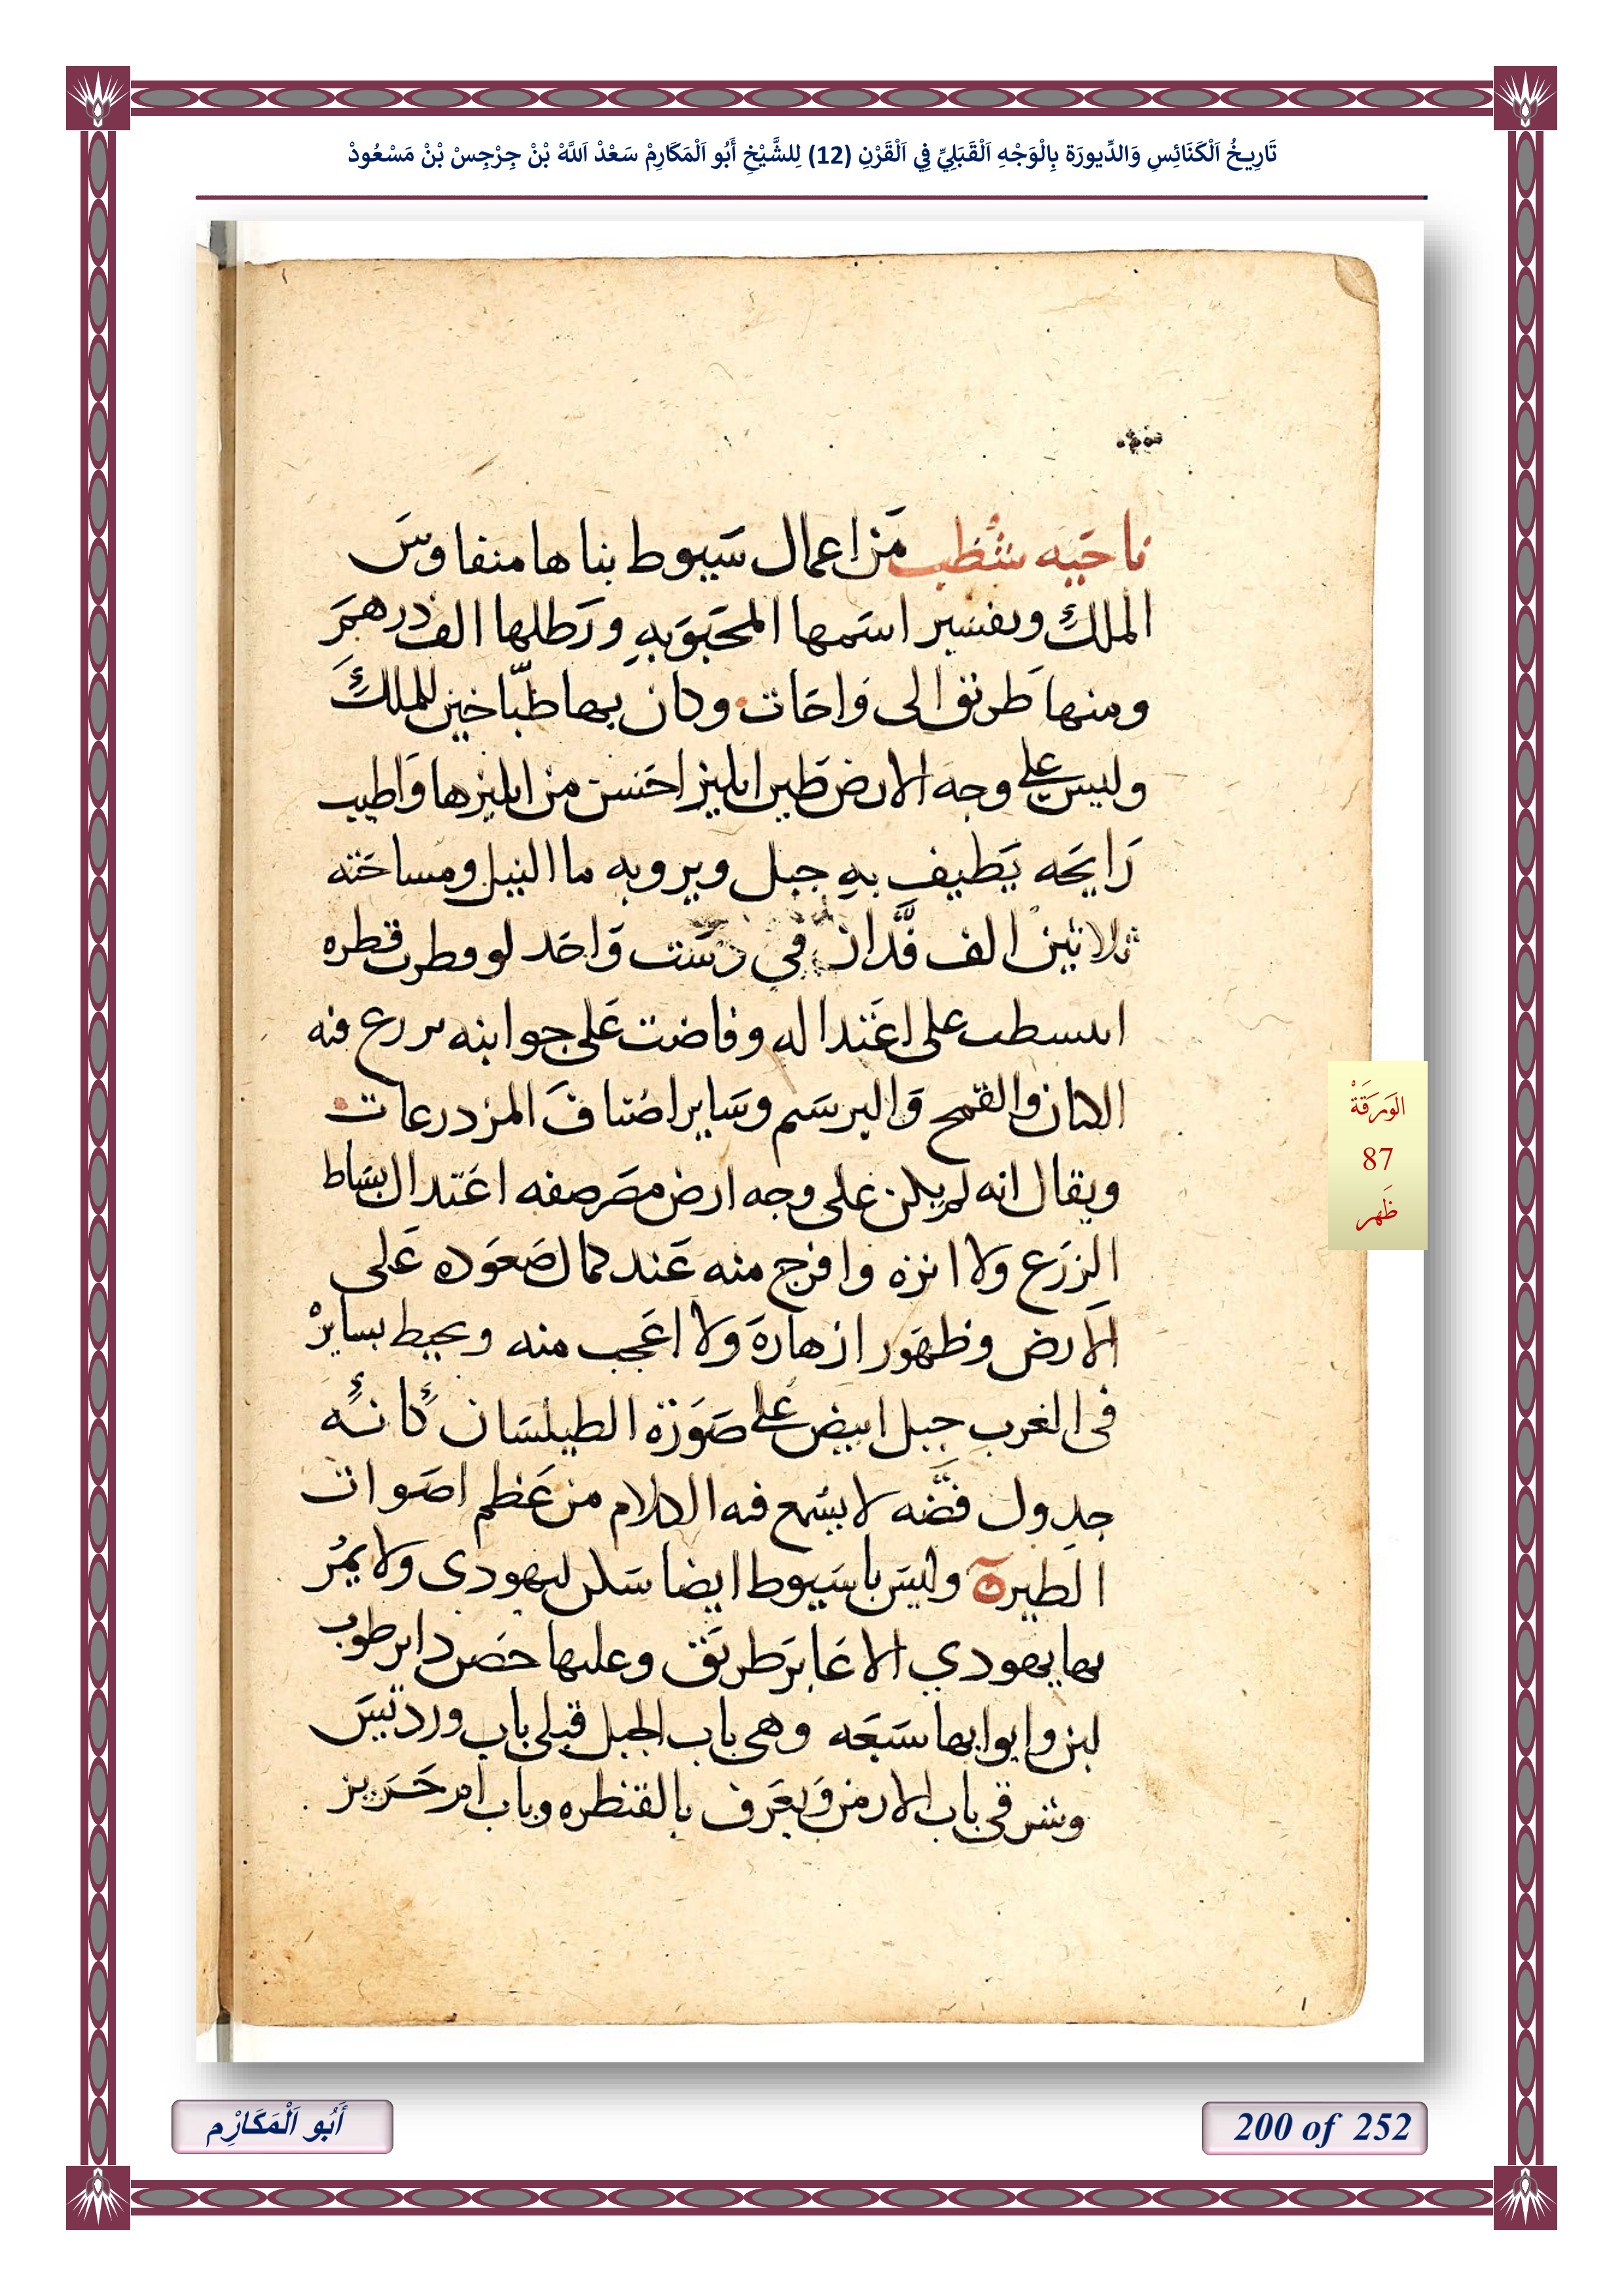 تَارِيخُ اَلْكَنَائِسِ وَالدِّيورَة بِالْوَجْهِ اَلْقَبَلِيِّ فِي اَلْقَرْنِ (12) لِلشَّيْخِ أَبُو اَلْمَكَارِمْ سَعْدْ اَللَّهْ بْنْ جِرْجِسْ بْنْ مَسْعُودْ
ناحيه شُطب من اعمال سيوط بناها منفاوس
الملك وتفسير اسمها المحبوبه ورطلها الف درهم
ومنها طريق الى واحات وكان بها طبّاخين للملك
وليس على وجه الارض طين ابليز احسن من ابليزها واطيب
رايحه يطيف به جبل ويرويه ما النيل ومساحته
ثلاثين الف فدّان في دست واحد لو قطرت قطره
انبسطت على اعتداله وفاضت على جوانبه يزرع فيه
الكتان والقمح والبرسم وساير اصناف المزدرعات
ويقال انه لم يكن على وجه ارض مصر صفه اعتدال بساط
الزرع ولا انزه وافرج منه عند كمال صعوده على
الارض وظهور ازهاره ولا اعجب منه ويحيط بساير
فى الغرب جبل ابيض على صورة الطيلسان كانه
جدول فضّه لا يسمع فيه الكلام من عظم اصوات
الطير وليس باسيوط ايضا سكن ليهودى ولا يمر
بها يهودي الا عابر طريق وعليها حصن داير طوب
لبن وابوابها سبعه وهى باب الجبل قبلى باب
وشرقى باب الارمن ويعرف بالقنطره وباب ام حريز
الوَرَقَةْ
87
ظَهر
أَبُو اَلْمَكَارِْم
200 of 252